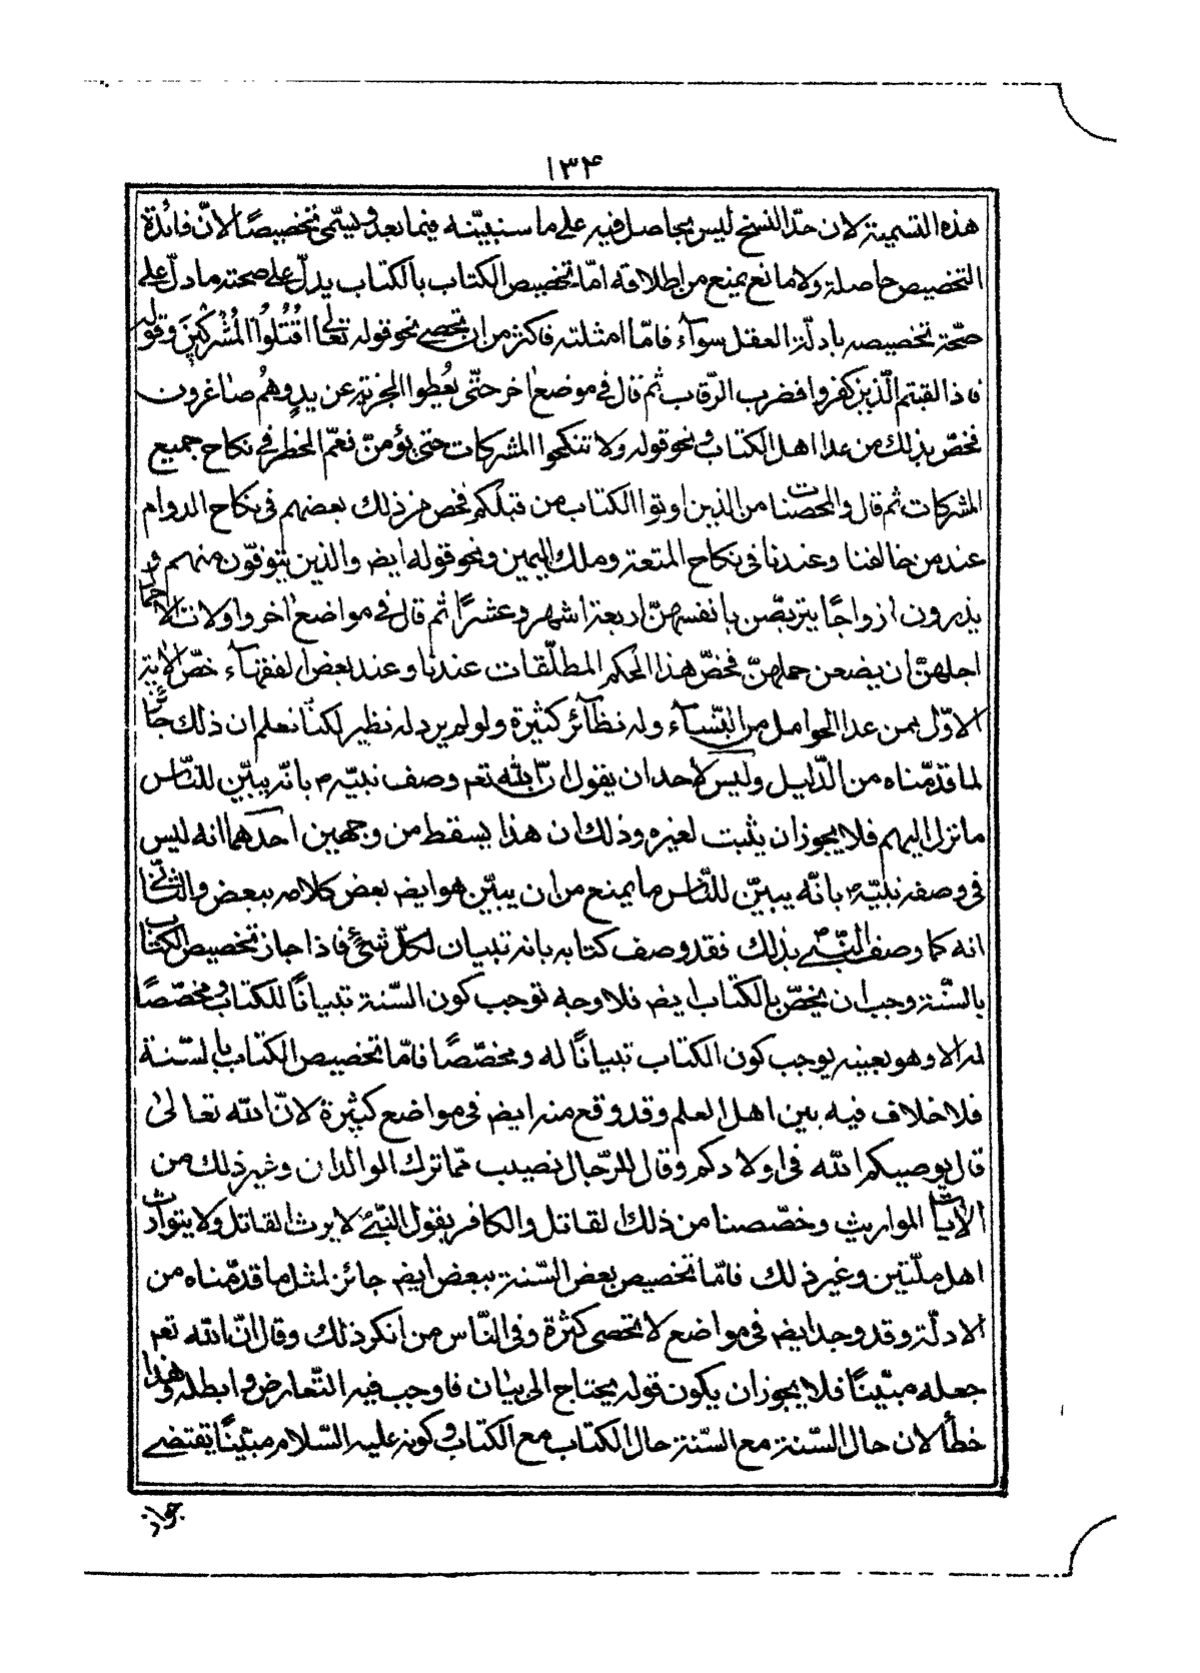 ١٣۴
هذه التسمية لان حدّ النسخ ليس بحاصل فيه على ما سنبيّنه فيما بعد ويسمّى تخصيصًا لانّ فائدة
التخصيص حاصلة ولا مانع يمنع من اطلاقه امّا تخصيص الكتاب بالكتاب يدلّ على صحته ما دلّ على
صحّة تخصيصه بادلّة العقل سوآء فامّا امثلته فاكثر من ان تحصى نحو قوله تعالى اقْتُلُوا الْمُشْرِكِينَ وقوله
فاذا لقيتم الّذين كفروا فضرب الرّقاب ثم قال فى موضع اخر حتّى يُعطوا الجزية عن يدٍ وهُم صاغرون
فخصّ بذلك من عدا اهل الكتاب ونحو قوله ولا تنكحوا المشركات حتى يؤمنّ فعمّ الحظر فى نكاح جميع
المشركات ثم قال والمحصنات من الذين اوتوا الكتاب من قبلكم فخص من ذلك بعضهم فى نكاح الدوام
عند من خالفنا وعندنا فى نكاح المتعة وملك اليمين ونحو قوله ايضا والذين يتوفّون منهم و
يذرون ازواجًا يتربصّن بانفسهنّ اربعة اشهر وعشرًا ثم قال فى مواضع اخر واولات الاحمال
اجلهنّ ان يضعن حملهنّ فخصّ هذا الحكم المطلّقات عندنا وعند بعض الفقهآء خصّ الاية
الاوّل بمن عدا الحوامل من النّسآء وله نظآئر كثيرة ولو لم يرد له نظير لكنّا نعلم ان ذلك جائز
لما قدّمناه من الدّليل وليس لاحد ان يقول انّ الله تعم وصف نبيّه م بانّه يبيّن للنّاس
ما نزل اليهم فلا يجوز ان يثبت لغيره وذلك ان هذا يسقط من وجهين احدهما انه ليس
فى وصفه نبيّه م بانّه يبيّن للنّاس ما يمنع من ان يبيّن هو ايضا بعض كلامه ببعض والثّانى
انه كما وصف النّبىّ بذلك فقد وصف كتابه بانه تبيان لكلّ شئ فاذا جاز تخصيص الكتاب
بالسّنة وجب ان يخصّ بالكتاب ايضا فلا وجه توجب كون السّنة تبيانًا للكتاب ومخصّصًا
له الا وهو بعينه يوجب كون الكتاب تبيانًا له ومخصّصًا فامّا تخصيص الكتاب بالسّنة
فلا خلاف فيه بين اهل العلم وقد وقع منه ايضا فى مواضع كثيرة لانّ الله تعالىٰ
قال يوصيكم الله فى اولادكم وقال للرّجال نصيب ممّا ترك الوالدان وغير ذلك من
الايات المواريث وخصّصنا من ذلك القاتل والكافر بقول النّبىّ لا يرث القاتل ولا يتوارث
اهل ملّتين وغير ذلك فامّا تخصيص بعض السّنة ببعض ايضا جائز لمثل ما قدّمناه من
الادلّة وقد وجد ايضا فى مواضع لا تحصى كثرة وفى النّاس من انكر ذلك وقال انّ الله تعم
جعله مبيّنًا فلا يجوز ان يكون قوله يحتاج الى بيان فاوجب فيه التّعارض وابطله وهذا
خطأ لان حال السّنة مع السّنة حال الكتاب مع الكتاب وكونه عليه السّلام مبيّنًا يقتضى
جواز